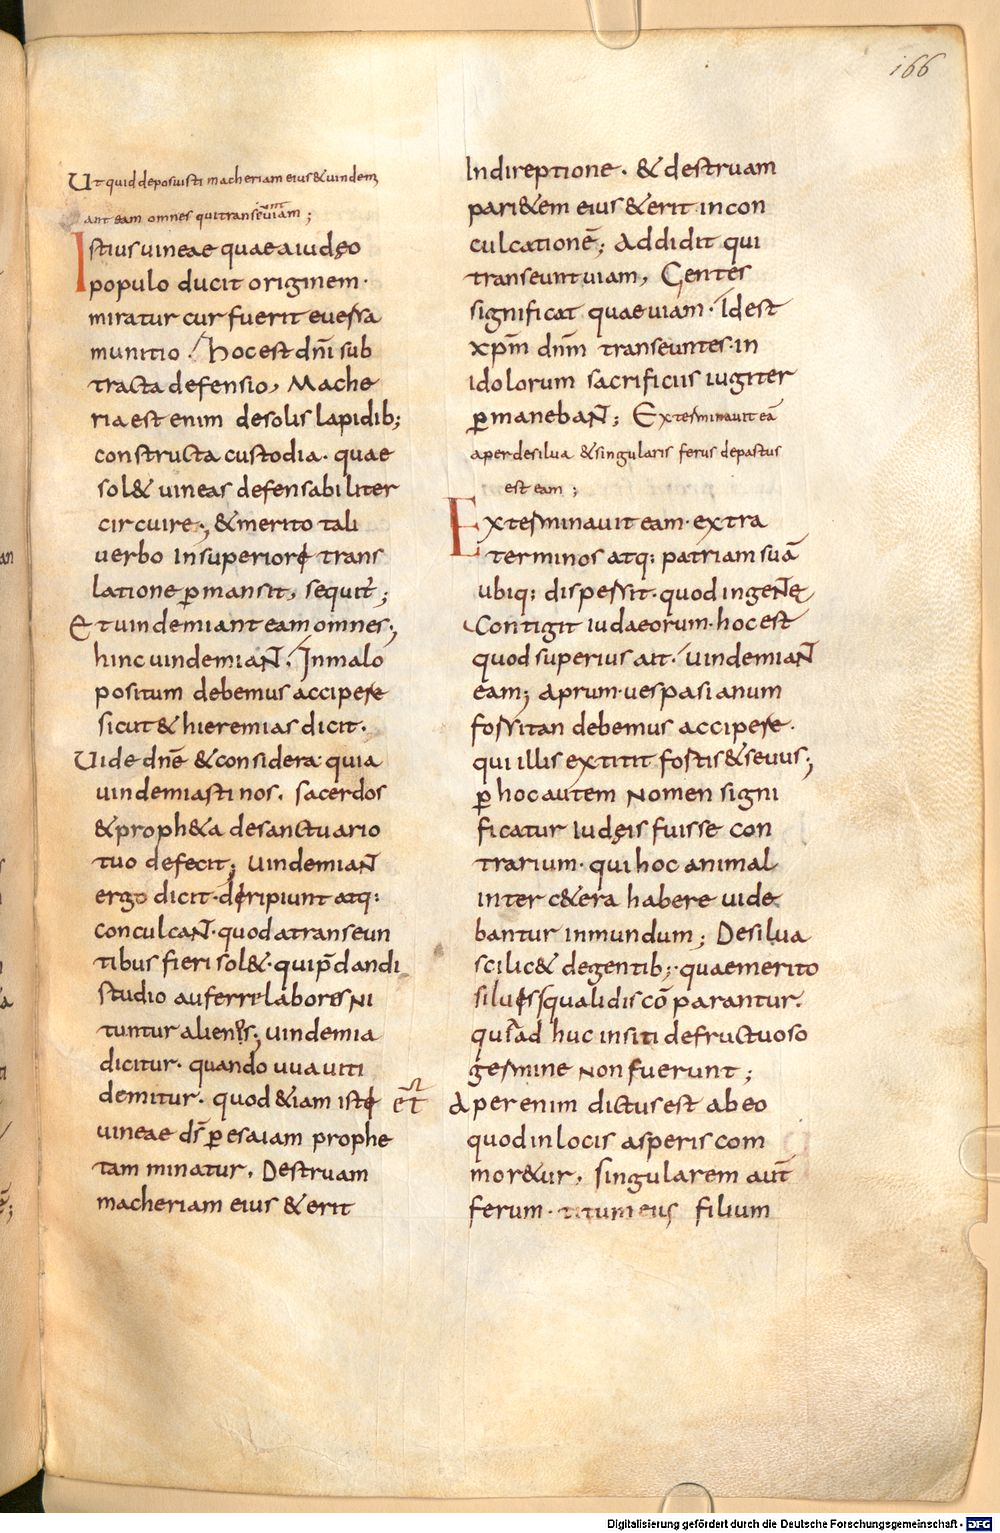 166
Ut quid deposuisti macheriam eius & uindem
ant eam omnes qui transeunt uiam;
Istius uineae quae a iudęo
populo ducit originem·
miratur cur fuerit euersa
munitio· Hoc est dn̄i sub
tracta defensio, Mache
ria est enim de solis lapidib;
constructa custodia· quae
sol& uineas defensabiliter
circuire; & merito tali
uerbo In superiore trans
latione ꝑmansit, sequit̄;
Et uindemiant eam omnes;
hinc uindemiaN̄· In malo
positum debemus accipere
sicut & hieremias dicit·
Uide dn̄e & considera quia
uindemiasti nos, sacerdos
& proph&a de sanctuario
tuo defecit; UindemiaN̄
ergo dicit· deripiunt atq:
conculcaN̄· quod a transeun
tibus fieri sol&· qui p̄dandi
studio auferre labores NI
tuntur alienos; uindemia
dicitur· quando uua uiti
demitur· quod &iam iste
uineae ds̄ ꝑ esaiam prophe
tam minatur, Destruam
macheriam eius & erit
In direptione· & destruam
pari&em eius & erit in con
culcationē; Addidit qui
transeunt uiam, Gentes
significat quae uiam· Id est
xp̄m dn̄m transeuntes· in
idolorum sacrificiis iugiter
ꝑmanebaN̄; Exterminauit eā
aper de silua & singularis ferus depastus
est eam;
Exterminauit eam· extra
terminos atq: patriam suā
ubiq: dispersit· quod in geN̄e
Contigit iudaeorum· hoc est
quod superius ait· uindemiaN̄
eam; Aprum· uespasianum
forsitan debemus accipere·
qui illis extitit fortis & seuus;
ꝑ hoc autem nomen signi
ficatur Iudęis fuisse con
trarium· qui hoc animal
inter c&era habere uide
bantur inmundum; De silua
scilic& degentib;· quae merito
silues squalidis cō parantur·
quia ad huc insiti de fructuoso
germine non fuerunt;
Aper enim dictus est ab eo
quod in locis asperis com
mor&ur, singularem aut̄
ferum· titum eius filium
Digitalisierung gefördert durch die Deutsche Forschungsgemeinschaft - DFG